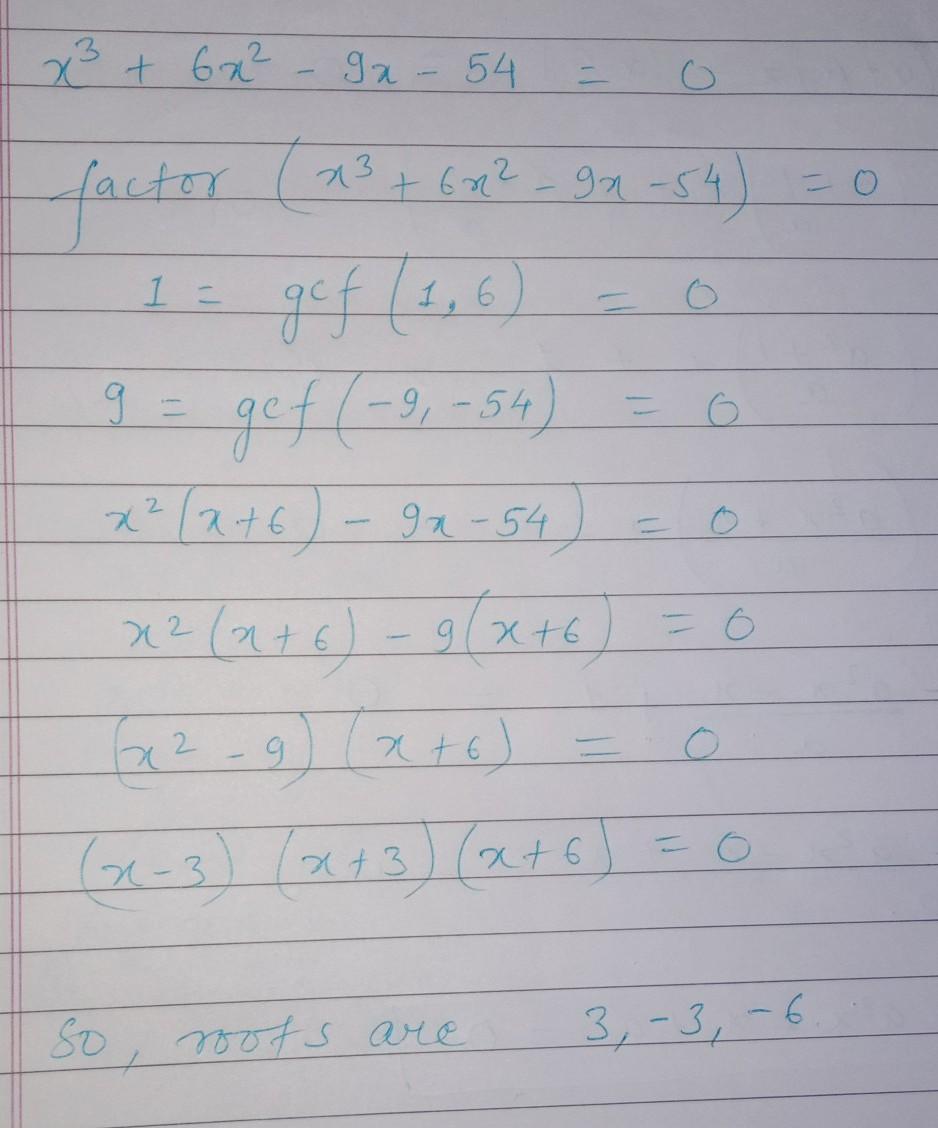 x³ + 6x² - 9x - 54 = 0
factor (x³ + 6x² - 9x - 54) = 0
1 = gcf (1, 6) = 0
9 = gcf (-9, -54) = 0
x² (x+6) - 9x - 54) = 0
x² (x+6) - 9(x+6) = 0
(x² - 9) (x+6) = 0
(x-3) (x+3) (x+6) = 0
So, roots are 3, -3, -6.